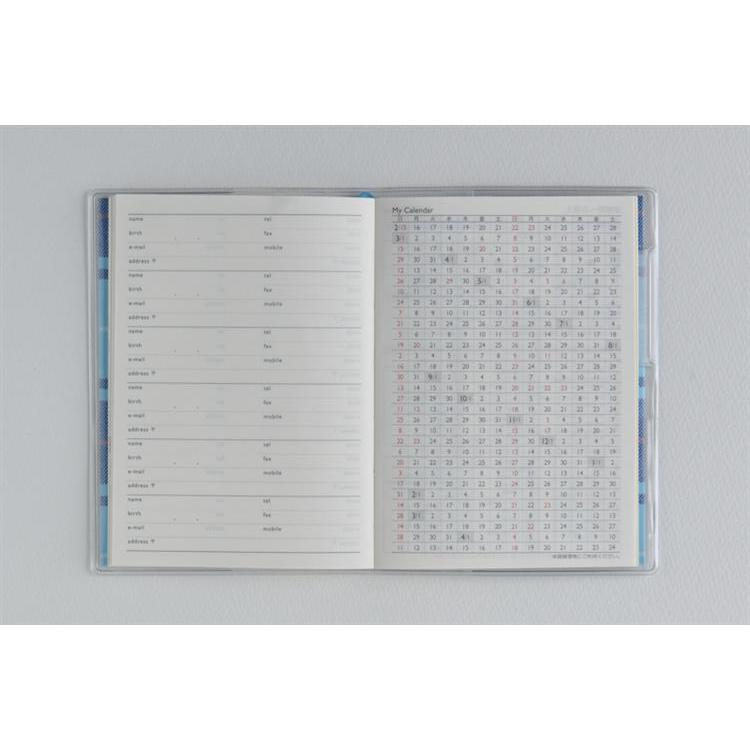 name tel
birth fax
e-mail mobile
address 〒
name tel
birth fax
e-mail mobile
address 〒
name tel
birth fax
e-mail mobile
address 〒
name tel
birth fax
e-mail mobile
address 〒
name tel
birth fax
e-mail mobile
address 〒
name tel
birth fax
e-mail mobile
address 〒
My Calendar
日 月 火 水 木 金 土 日 月 火 水 木 金 土
2/15 16 17 18 19 20 21 22 23 24 25 26 27 28
3/1 2 3 4 5 6 7 8 9 10 11 12 13 14
15 16 17 18 19 20 21 22 23 24 25 26 27 28
29 30 31 4/1 2 3 4 5 6 7 8 9 10 11
12 13 14 15 16 17 18 19 20 21 22 23 24 25
26 27 28 29 30 5/1 2 3 4 5 6 7 8 9
10 11 12 13 14 15 16 17 18 19 20 21 22 23
24 25 26 27 28 29 30 31 6/1 2 3 4 5 6
7 8 9 10 11 12 13 14 15 16 17 18 19 20
21 22 23 24 25 26 27 28 29 30 7/1 2 3 4
5 6 7 8 9 10 11 12 13 14 15 16 17 18
19 20 21 22 23 24 25 26 27 28 29 30 31 8/1
2 3 4 5 6 7 8 9 10 11 12 13 14 15
16 17 18 19 20 21 22 23 24 25 26 27 28 29
30 31 9/1 2 3 4 5 6 7 8 9 10 11 12
13 14 15 16 17 18 19 20 21 22 23 24 25 26
27 28 29 30 10/1 2 3 4 5 6 7 8 9 10
11 12 13 14 15 16 17 18 19 20 21 22 23 24
25 26 27 28 29 30 31 11/1 2 3 4 5 6 7
8 9 10 11 12 13 14 15 16 17 18 19 20 21
22 23 24 25 26 27 28 29 30 12/1 2 3 4 5
6 7 8 9 10 11 12 13 14 15 16 17 18 19
20 21 22 23 24 25 26 27 28 29 30 31 1/1 2
3 4 5 6 7 8 9 10 11 12 13 14 15 16
17 18 19 20 21 22 23 24 25 26 27 28 29 30
31 2/1 2 3 4 5 6 7 8 9 10 11 12 13
14 15 16 17 18 19 20 21 22 23 24 25 26 27
28 3/1 2 3 4 5 6 7 8 9 10 11 12 13
14 15 16 17 18 19 20 21 22 23 24 25 26 27
28 29 30 31 4/1 2 3 4 5 6 7 8 9 10
11 12 13 14 15 16 17 18 19 20 21 22 23 24
ご利用ください。